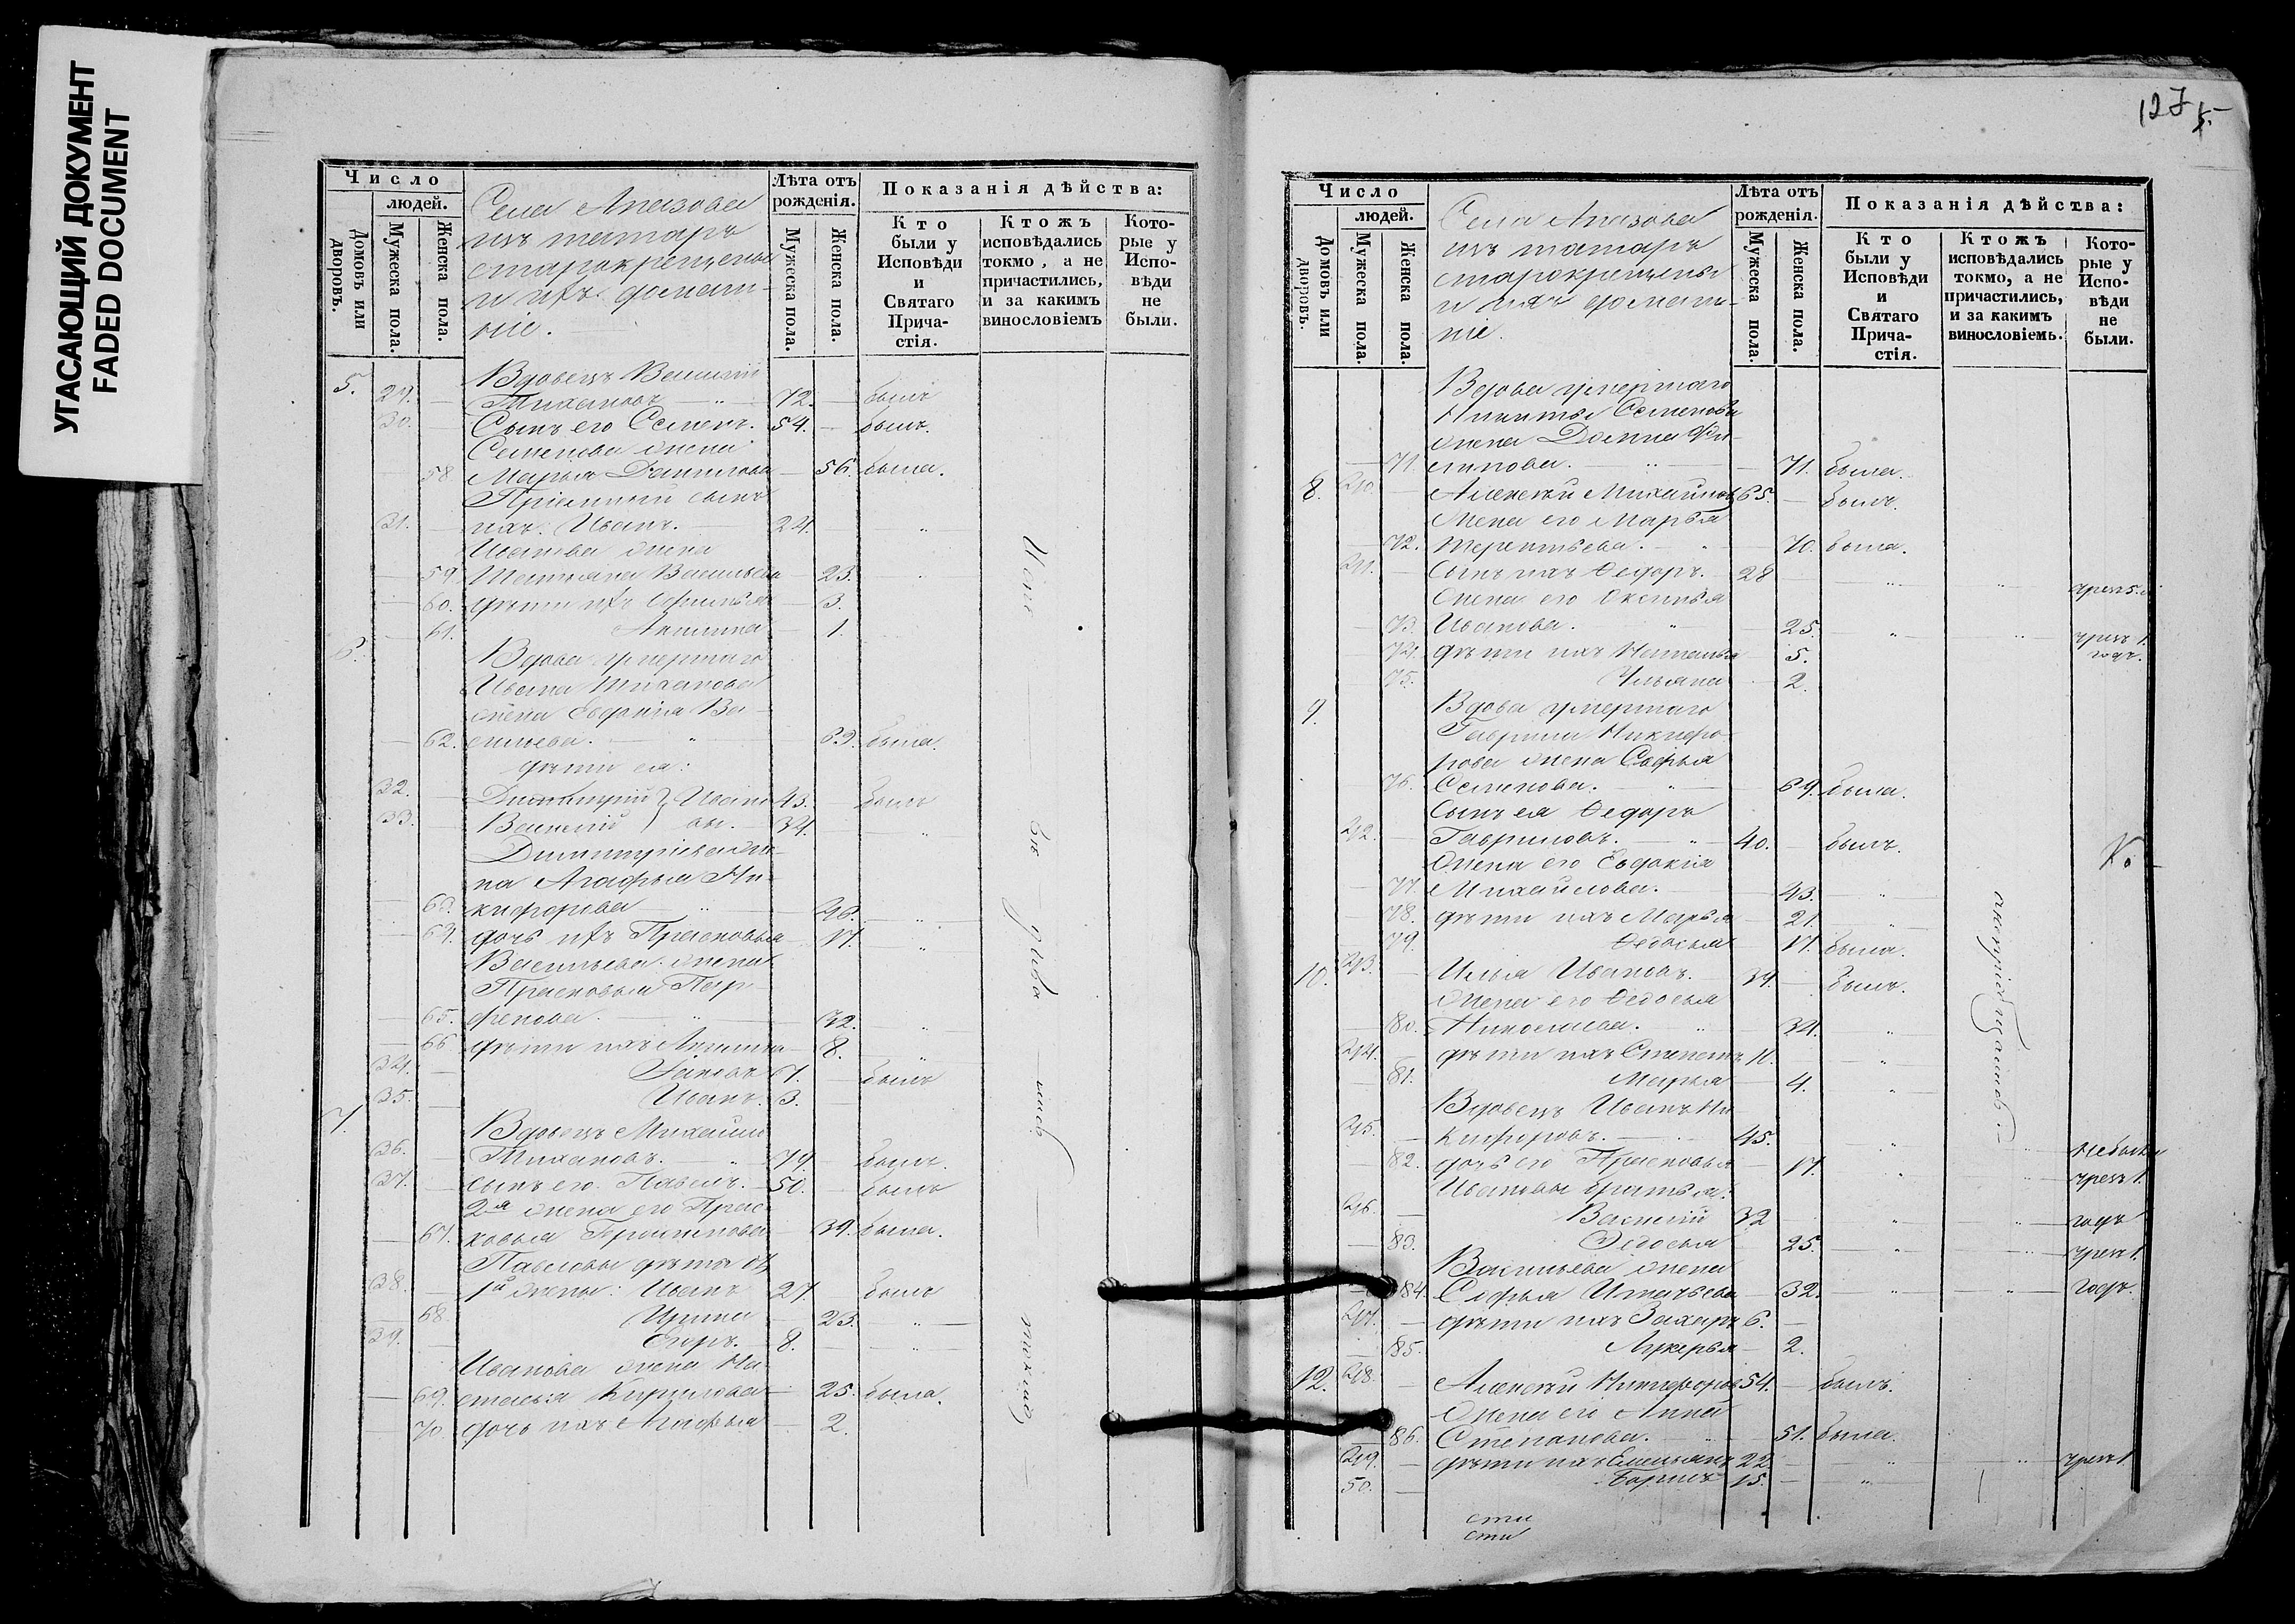 УГАСАЮЩИЙ ДОКУМЕНТ
FADED DOCUMENT
Число
людей.
Домовъ или дворовъ.
Мужеска пола.
Женска пола.
Села Апазова
изъ татаръ
старокрещены
и ихъ домаш-
ніе.
Лѣта отъ рожденія.
Мужеска пола.
Женска пола.
Показанія дѣйства:
Кто были у Исповѣди и Святаго Прича-стія.
Ктожъ исповѣдались токмо, а не причастились, и за какимъ винословіемъ
Кото-рые у Испо-вѣди не были.
5. Вдовецъ Василій
29. Тихановъ 72. былъ
30. Сынъ его Семенъ. 54. былъ.
Семенова жена
58. Марья Данилова 56. была.
Пріемный сынъ
31. ихъ Иванъ. 24. "
Иванова жена
59. Татіана Васильева 23. "
60. дѣти ихъ 3.
61. Аннина 1.
6. Вдова умершаго
Ивана Тиханова
жена Евдокія Ва-
62. сильева. 63. была.
дѣти ея:
32. Димитрій Ивано 43. былъ
33. Василій вы. 34. "
Димитріева же-
на Агафья Ни-
63. кифорова 46. "
64. дочь ихъ Прасковья 17. "
Васильева жена
Прасковья Пар-
65. фенова. 32. "
66 дѣти ихъ 8. "
34. Іаковъ 7. былъ
35. Иванъ. 3.
7. Вдовецъ Михаилъ
36. Тихановъ. 79. былъ.
37. сынъ его Павелъ. 50. былъ
2я жена его Прас-
67. ковья 39. была.
Павловы дѣти отъ
38. 1й жены: Иванъ 27. былъ
68. Ирина 23. "
39. Егоръ. 8. "
Иванова жена На-
69. стасья Кирилова 25. была.
70. дочь ихъ Агафья 2.
127
5.
Число
людей.
Домовъ или дворовъ.
Мужеска пола.
Женска пола.
Села Апазова
изъ татаръ
старокрещены
и ихъ домаш-
ніе.
Лѣта отъ рожденія.
Мужеска пола.
Женска пола.
Показанія дѣйства:
Кто были у Исповѣди и Святаго Прича-стія.
Ктожъ исповѣдались токмо, а не причастились, и за какимъ винословіемъ.
Кото-рые у Испо-вѣди не были.
Вдова умершаго
Никиты Семенова
жена Домна Фи-
71. липова. 71. была.
8. 40. Алексѣй Михайловъ 65. былъ.
Жена его Марья
72. Терентьева. 70. была.
41. Сынъ ихъ Ѳедоръ. 28 "
Жена его Оксинья
73. Иванова. 25. " чрезъ 1.
74. дѣти ихъ Наталья 5. годъ.
75. Ульяна 2.
9. Вдова умершаго
Гаврила Никифо-
рова жена Софья
76. Семенова. 69. была.
Сынъ ея Ѳедоръ
42. Гавриловъ. 40. былъ.
Жена его Евдокія
77. Михайлова. 43. "
78. дѣти ихъ Марья 21. "
79. Ѳедосья 17. была.
10. 43. Илья Ивановъ. 34. былъ.
Жена его Ѳедосья
80. Николаева. 34. "
44. дѣти ихъ Степанъ 11. "
81. Марья 4. "
Вдовецъ Иванъ Ни-
45. кифоровъ. 45. " не были
82. дочь его Прасковья 17. " чрезъ 1.
Ивановы братья:
46. Василій 32 " годъ
83. Ѳедосья 25. " чрезъ 1.
Васильева жена
84. Софья Игнатьева 32. " годъ.
47. дѣти ихъ Захаръ 6.
85. Лукерья 2.
12. 48. Алексѣй Никифоровъ 54. былъ.
Жена его Анна
86. Степанова. 51. была.
49. дѣти ихъ Емельянъ 22. " чрезъ 1
50. Борисъ 15. "
сти
сти